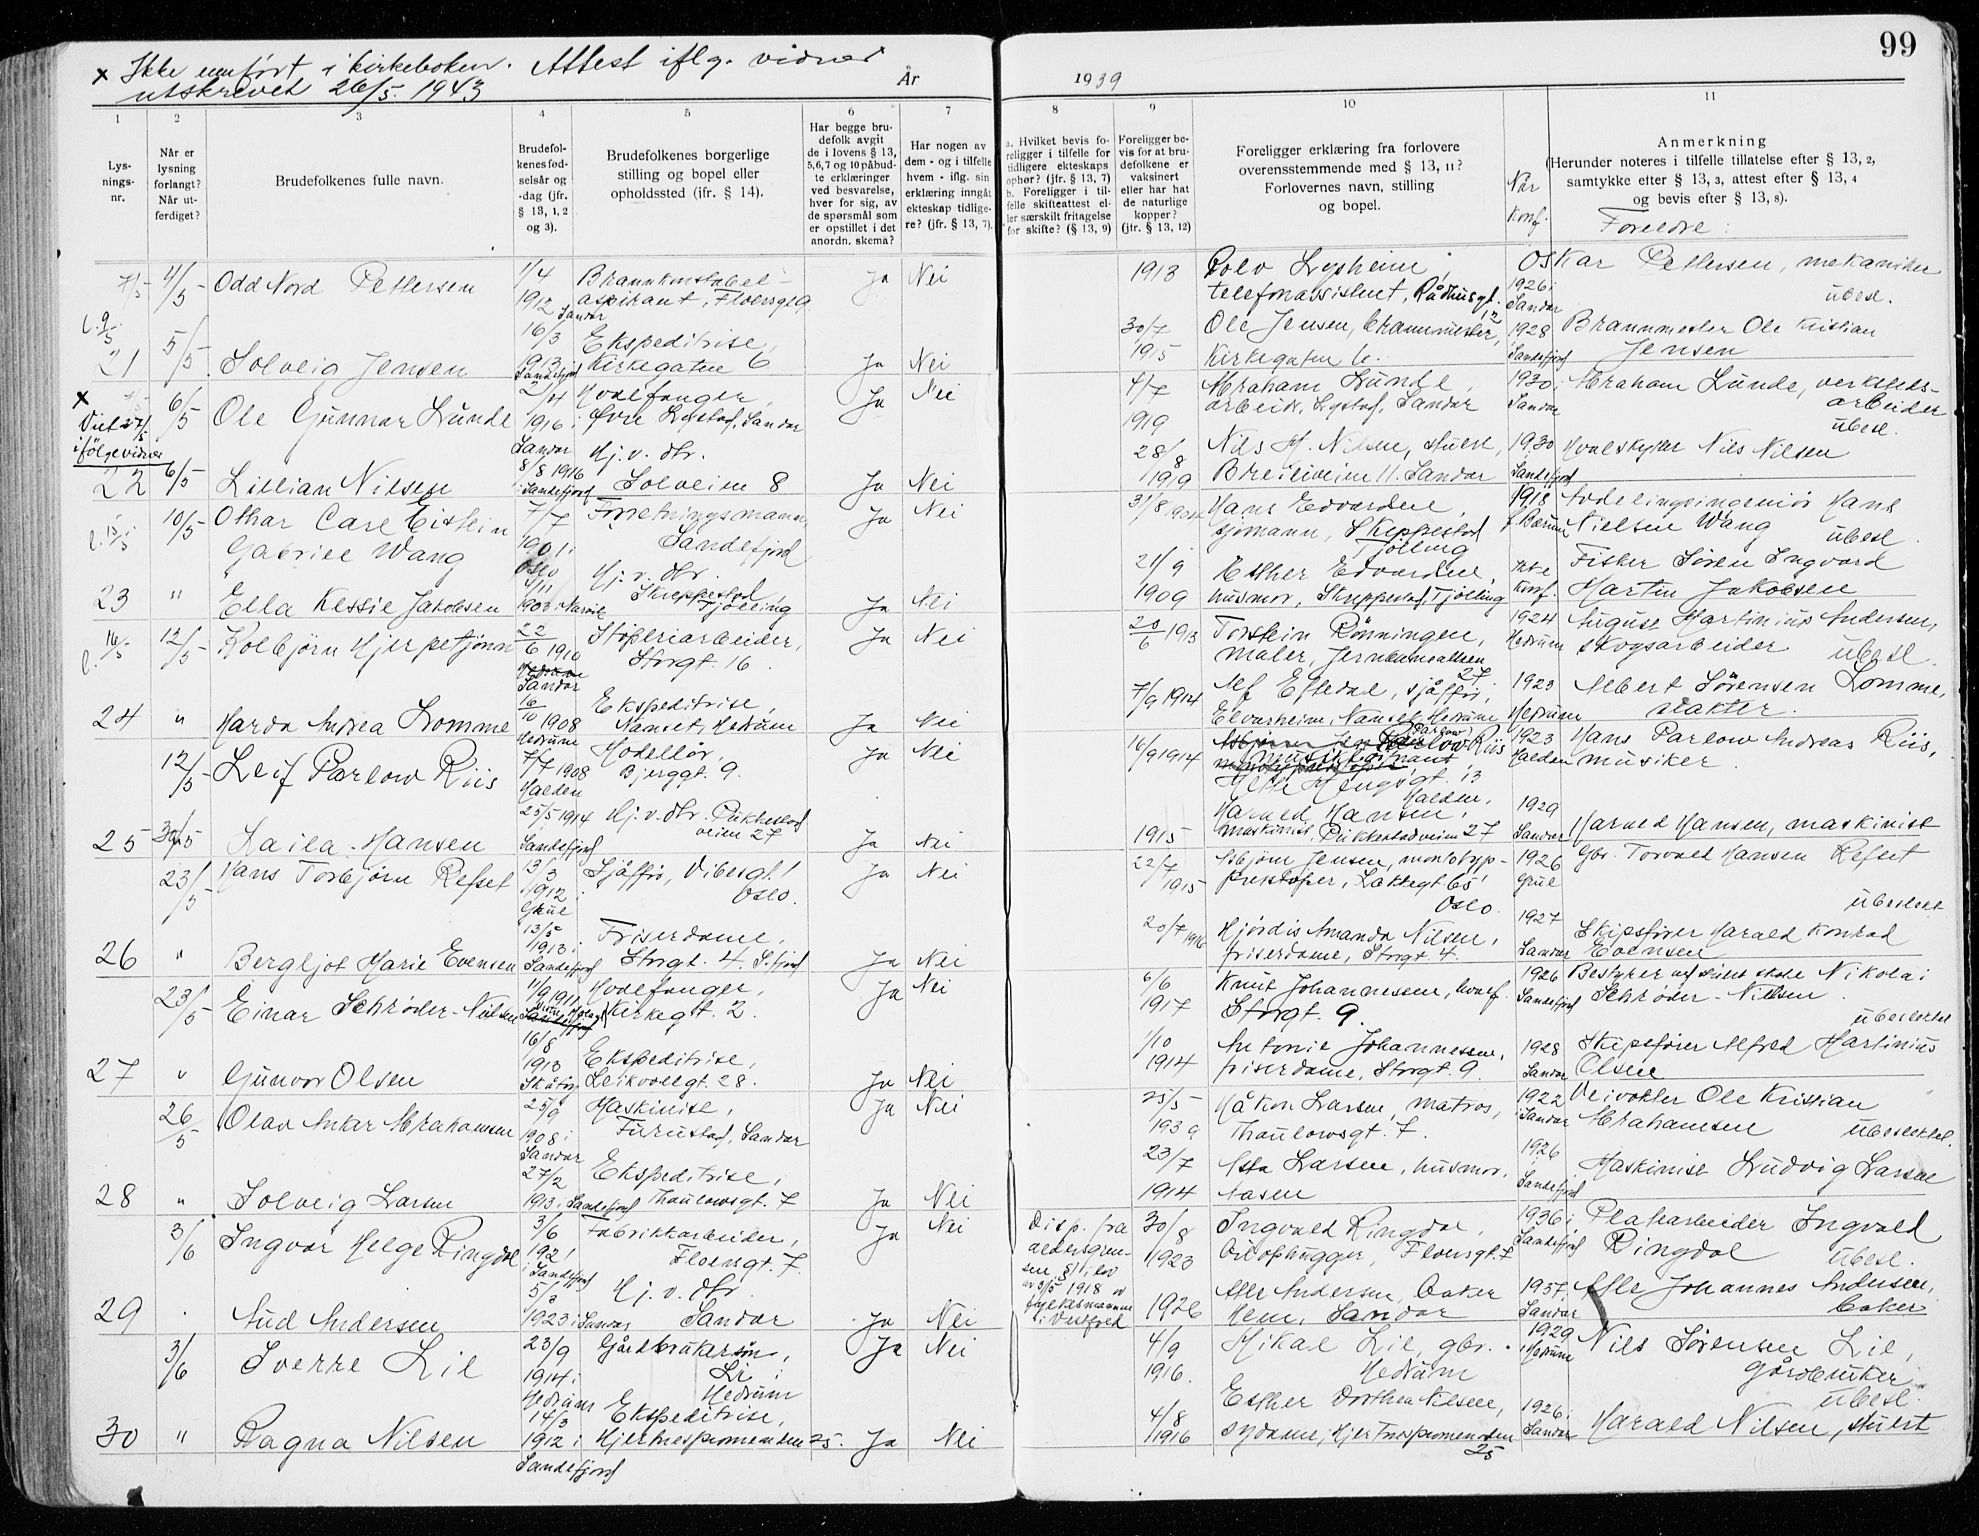 99
x Ikke innført i kirkeboken. Attest iflg. vidner
utskrevet 26/5. 1943
År 1939
1 2 3 4 5 6 7 8 9 10 11
Lysningsnr.
Når er lysning forlangt? Når utferdiget?
Brudefolkenes fulle navn.
Brudefolkenes fødselsår og -dag (jfr. § 13, 1, 2 og 3).
Brudefolkenes borgerlige stilling og bopel eller opholdssted (jfr. § 14).
Har begge brudefolk avgit de i lovens § 13, 5,6,7 og 10 påbudte erklæringer ved besvarelse, hver for sig, av de spørsmål som er opstillet i det anordn. skema?
Har nogen av dem - og i tilfelle hvem - iflg. sin erklæring inngått ekteskap tidligere? (jfr. § 13, 7).
a. Hvilket bevis foreligger i tilfelle for tidligere ekteskaps ophør? (jfr. § 13, 7) b. Foreligger i tilfelle skifteattest eller særskilt fritagelse for skifte? (§ 13, 9)
Foreligger bevis for at brudefolkene er vaksinert eller har hat de naturlige kopper? (jfr. § 13, 12)
Foreligger erklæring fra forlovere overensstemmende med § 13, 11? Forlovernes navn, stilling og bopel.
Når konf.
Anmerkning (Herunder noteres i tilfelle tillatelse efter § 13, 2, samtykke efter § 13, 3, attest efter § 13, 4 og bevis efter § 13, 8).
Foreldre:
4/5 Odd Nord Pettersen 1/4 1912 Sandar Brannkonstabel-aspirant, Floensgt 9 Ja Nei 1913 Rolv Lysheim, telefonassistent, Rådhusgt. 12 1926 i Sandar Oskar Pettersen, mekaniker ubesl.
l. 9/5
21 5/5 Solveig Jensen 16/3 1913 i Sandefjord Ekspeditrise, Kirkegaten 6 Ja Nei 30/7 1915 Ole Jensen, brannmester, Kirkegaten 6. 1928 Sandefjord Brannmester Ole Kristian Jensen
x Viet 27/5 ifølge vidner
6/5 Ole Gunnar Lunde 2/4 1916 i Sandar Hvalfanger, Øvre Lystad, Sandar Ja Nei 4/7 1919 Abraham Lunde, arbeid., Lystad, Sandar 1930 i Sandar Abraham Lunde, verkstedsarbeider ubesl.
22 6/5 Lillian Nilsen 8/8 1916 i Sandefjord Hj.v. dtr. Solveien 8 Ja Nei 28/8 1919 Nils H. Nilsen, Breiliveien 11. Sandar 1930 Sandefjord Hvalskytter Nils Nilsen
l. 15/5
10/5 Othar Carl Eistein Gabriel Wang 7/7 1901 i Oslo Forretningsmann, Sandefjord Ja Nei 31/8 Hans Edvardsen, sjømann, Skeppestad Tjølling 1918 V. Bærum Avdelingsingeniør Hans Nielsen Wang ubesl.
23 " Ella Kessie Jakobsen 4/11 1903 i Narvik Hj. v. dtr. Skreppestad, Tjølling Ja Nei 21/9 1909 Esther Edvardsen, husmor, Skreppestad, Tjølling Ikke konf. Fisker Søren Ingvard Martin Jakobsen
l. 16/5
12/5 Kolbjørn Hjerpetjønn 22/6 1910 Sandar Støperiarbeider, Storgt. 16. Ja Nei 20/6 1913 Torstein Rønningen, maler, Jernbanealleen 27. 1924 Hedrum August Martinius Andersen, skogsarbeider ubesl.
24 " Marda Andrea Lomme 16/10 1908 Hedrum Ekspeditrise, Nanset, Hedrum Ja Nei 7/9 1914 Alf Eftedal, sjåfør, Elvarheim, Nanset, Hedrum 1923 Hedrum Albert Sørensen Lomme, slakter.
12/5 Leif Parlow Riis 7/7 1908 Halden Modellør, Bjerggt. 9. Ja Nei 16/9 1914 Parlow Riis Halden, 1923 Halden Hans Parlow Andreas Riis, musiker.
25 Laila Hansen 25/5 1914 Sandefjord Hj. v. dtr. Pukkestadveien 27 Ja Nei 1915 Harald Hansen, maskinist, Pukkestadveien 27 1929 Sandar Harald Hansen, maskinist
23/5 Hans Torbjørn Refset 13/3 1912 i Grue Sjåfør, Vibesgt 1 Oslo. Ja Nei 22/7 1915 Asbjørn Jensen, monotyp-, Lakkegt 65 Oslo. 1926 Grue Gbr. Torvald Hansen Refset ubeslekt
26 " Bergljot Marie Evensen 13/5 1913 i Sandefjord Friserdame, Storgt. 4. S.fjord Ja Nei 20/7 1916 Hjørdis Amanda Nilsen, friserdame, Storgt. 4. 1927 Sandar Skipsfører Harald Konrad Evensen
23/5 Einar Schrøder-Nilsen 11/9 1911 Hvalfanger, Kirkegt. 2. Ja Nei 6/6 1917 Knut Johannessen, hvalf. Storgt. 9. 1926 Sandefjord Bestyrer Nikolai Schrøder-Nilsen. ubeslektet
27 " Gunvor Olsen 16/8 1913 Skåtøy Ekspeditrise, Leikvollgt. 28. Ja Nei 1/10 1914 Antonie Johannessen, friserdame, Storgt. 9. 1928 Sandar Skipsfører Alfred Martinius Olsen
26/5 Olav Anker Abrahamsen 25/9 1908 i Sandar Maskinist, Furustad, Sandar Ja Nei 25/5 1939 Håkon Larsen, matros, Thaulowsgt. 7. 1922 i Sandar Veivokter Ole Kristian Abrahamsen ubeslektet.
28 " Solveig Larsen 27/2 1913 i Sandefjord Ekspeditrise, Thaulowsgt. 7 Ja Nei 23/7 1914 Asta Larsen, husmor. Aasen 1926 i Sandefjord Maskinist Ludvig Larsen
3/6 Ingvar Helge Ringdal 3/6 1921 i Sandefjord Fabrikkarbeider, Floensgt. 7. Ja Nei Disp. fra aldersgrensen § 1 i lov av 31/5 1918 av fylkesmannen i Vestfold 30/8 1923 Ingvald Ringdal, Floensgt. 7 1936 i Sandefjord Platearbeider Ingvald Ringdal ubesl.
29 Aud Andersen 5/3 1923 i Sandar Hj. v. dtr. Sandar Ja Nei 1926 Alle Andersen, baker Hem, Sandar 1937, Sandar Alle Johannes Andersen, baker
3/6 Sverre Lie 23/9 1914 i Hedrum Gårdbrukersøn, Li i Hedrum Ja Nei 4/9 1916. Mikal Lie, gbr. Hedrum 1929 i Hedrum Nils Sørensen Lie, gårdbruker ubesl.
30 " Ragna Nilsen 14/3 1912 i Sandefjord Ekspeditrise, Hjertnespromenaden 25. Ja Nei 4/8 1916 Esther Dorthea Nilsen, sydame, Hjertnespromenaden 25 1926 i Sandar Harald Nilsen, stuert